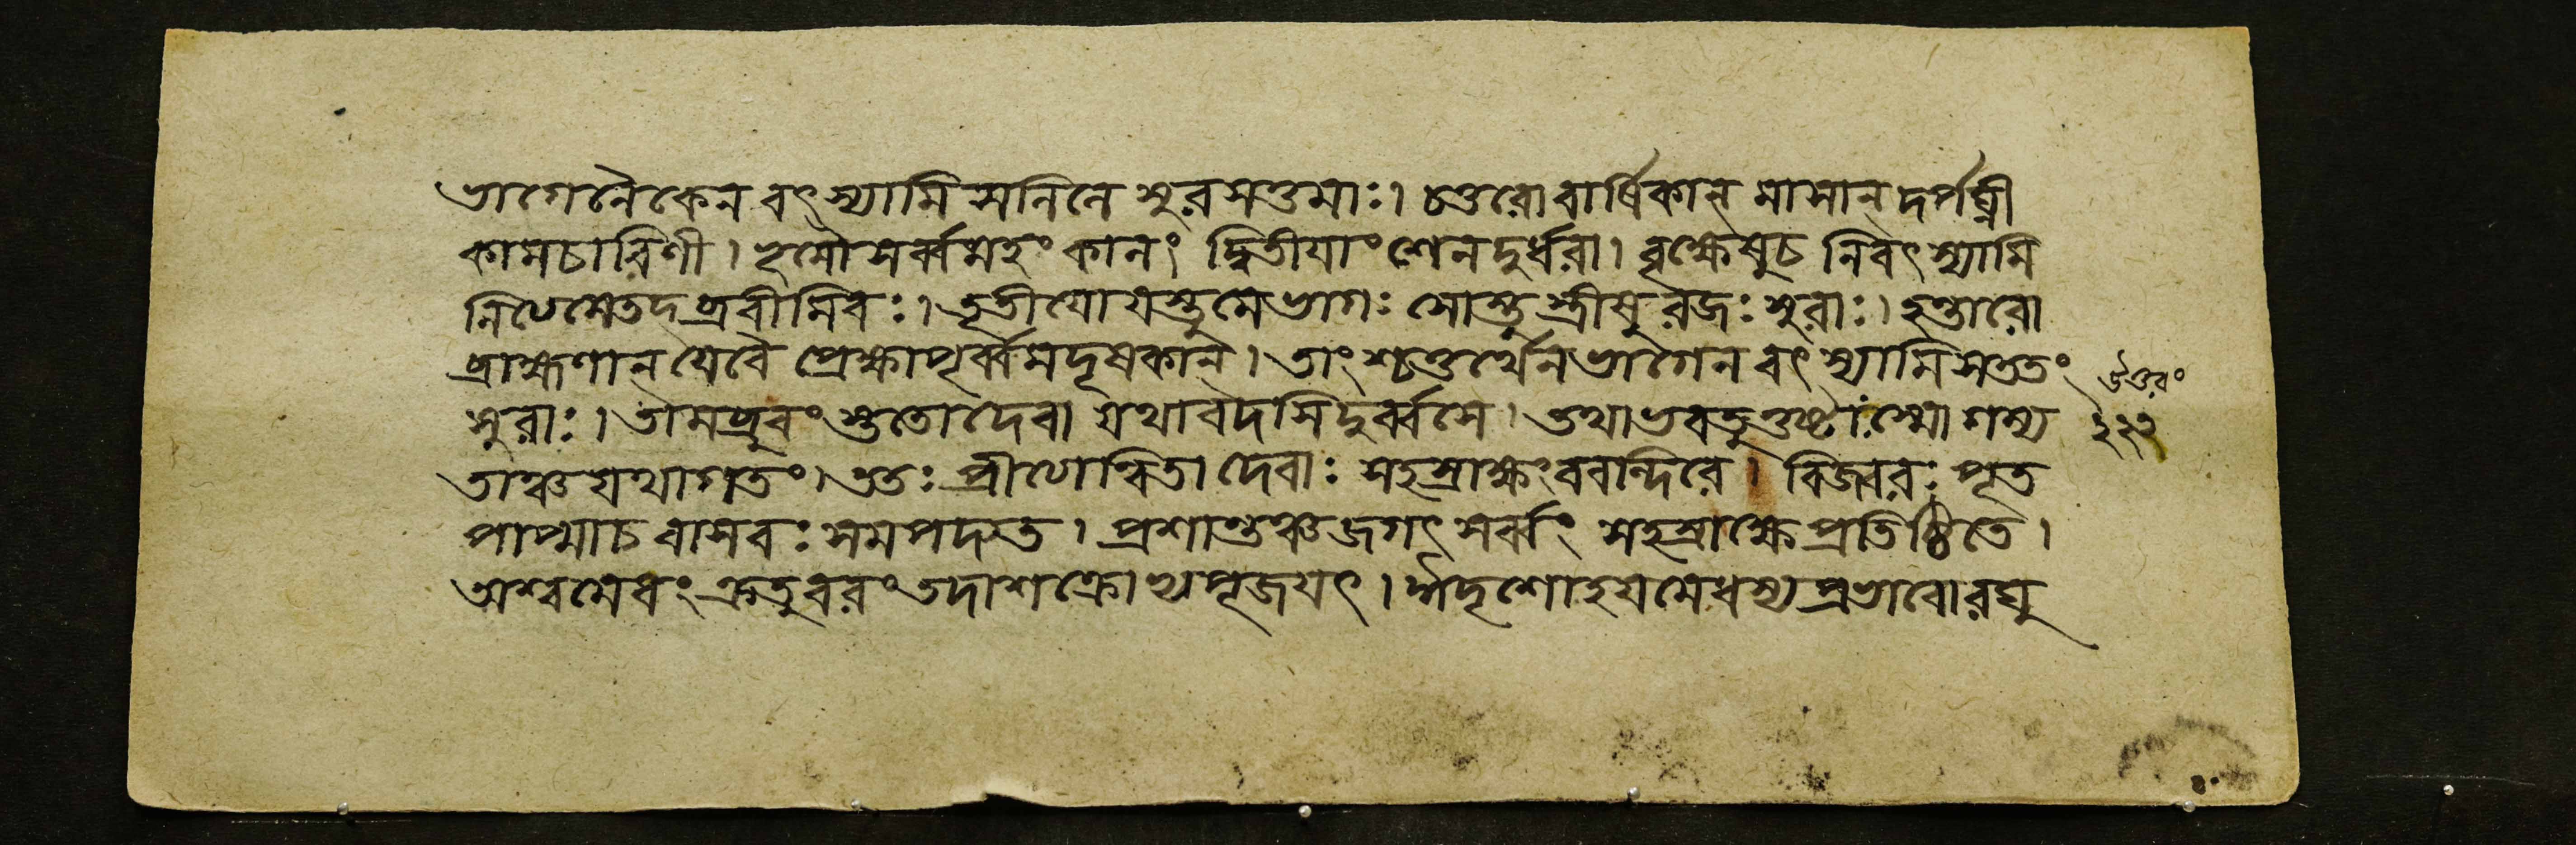 ভাগেনৈকেন বৎস্যামি সলিলে সুরসত্তমাঃ। চতুরো বার্ষিকান্ মাসান্ দর্পঘ্নী
কামচারিণী। ভূমৌ সর্ব্বমহং কালং দ্বিতীয়াংশেন দুর্ধরা। বৃক্ষেষু চ নিবৎস্যামি
তৃতীয়ো যস্তু মে ভাগঃ সোস্তু স্ত্রীষু রজঃ সুরাঃ। হন্তারো
ব্রাহ্মণান্ যে বৈ প্রেক্ষাপূর্ব্বমদূষকান্। তাংশ্চতুর্থেন ভাগেন বৎস্যামি সততং
সুরাঃ। তামব্রুবং স্ততো দেবা যথা বদসি দুর্ব্বসে। তথা ভবতু
ততঃ প্রীত্যান্বিতা দেবাঃ সহস্রাক্ষং ববন্দিরে। বিজ্বরঃ পূত
পাপ্মা চ বাসবঃ সমপদ্যত। প্রশান্তঞ্চ জগৎ সর্ব্বং সহস্রাক্ষে প্রতিষ্ঠিতে।
অশ্বমেধং ক্রতুবরং তদা শক্রোভ্যপূজয়ৎ। ঈদৃশো হয়মেধস্য প্রভাবো রঘু
উত্তরং